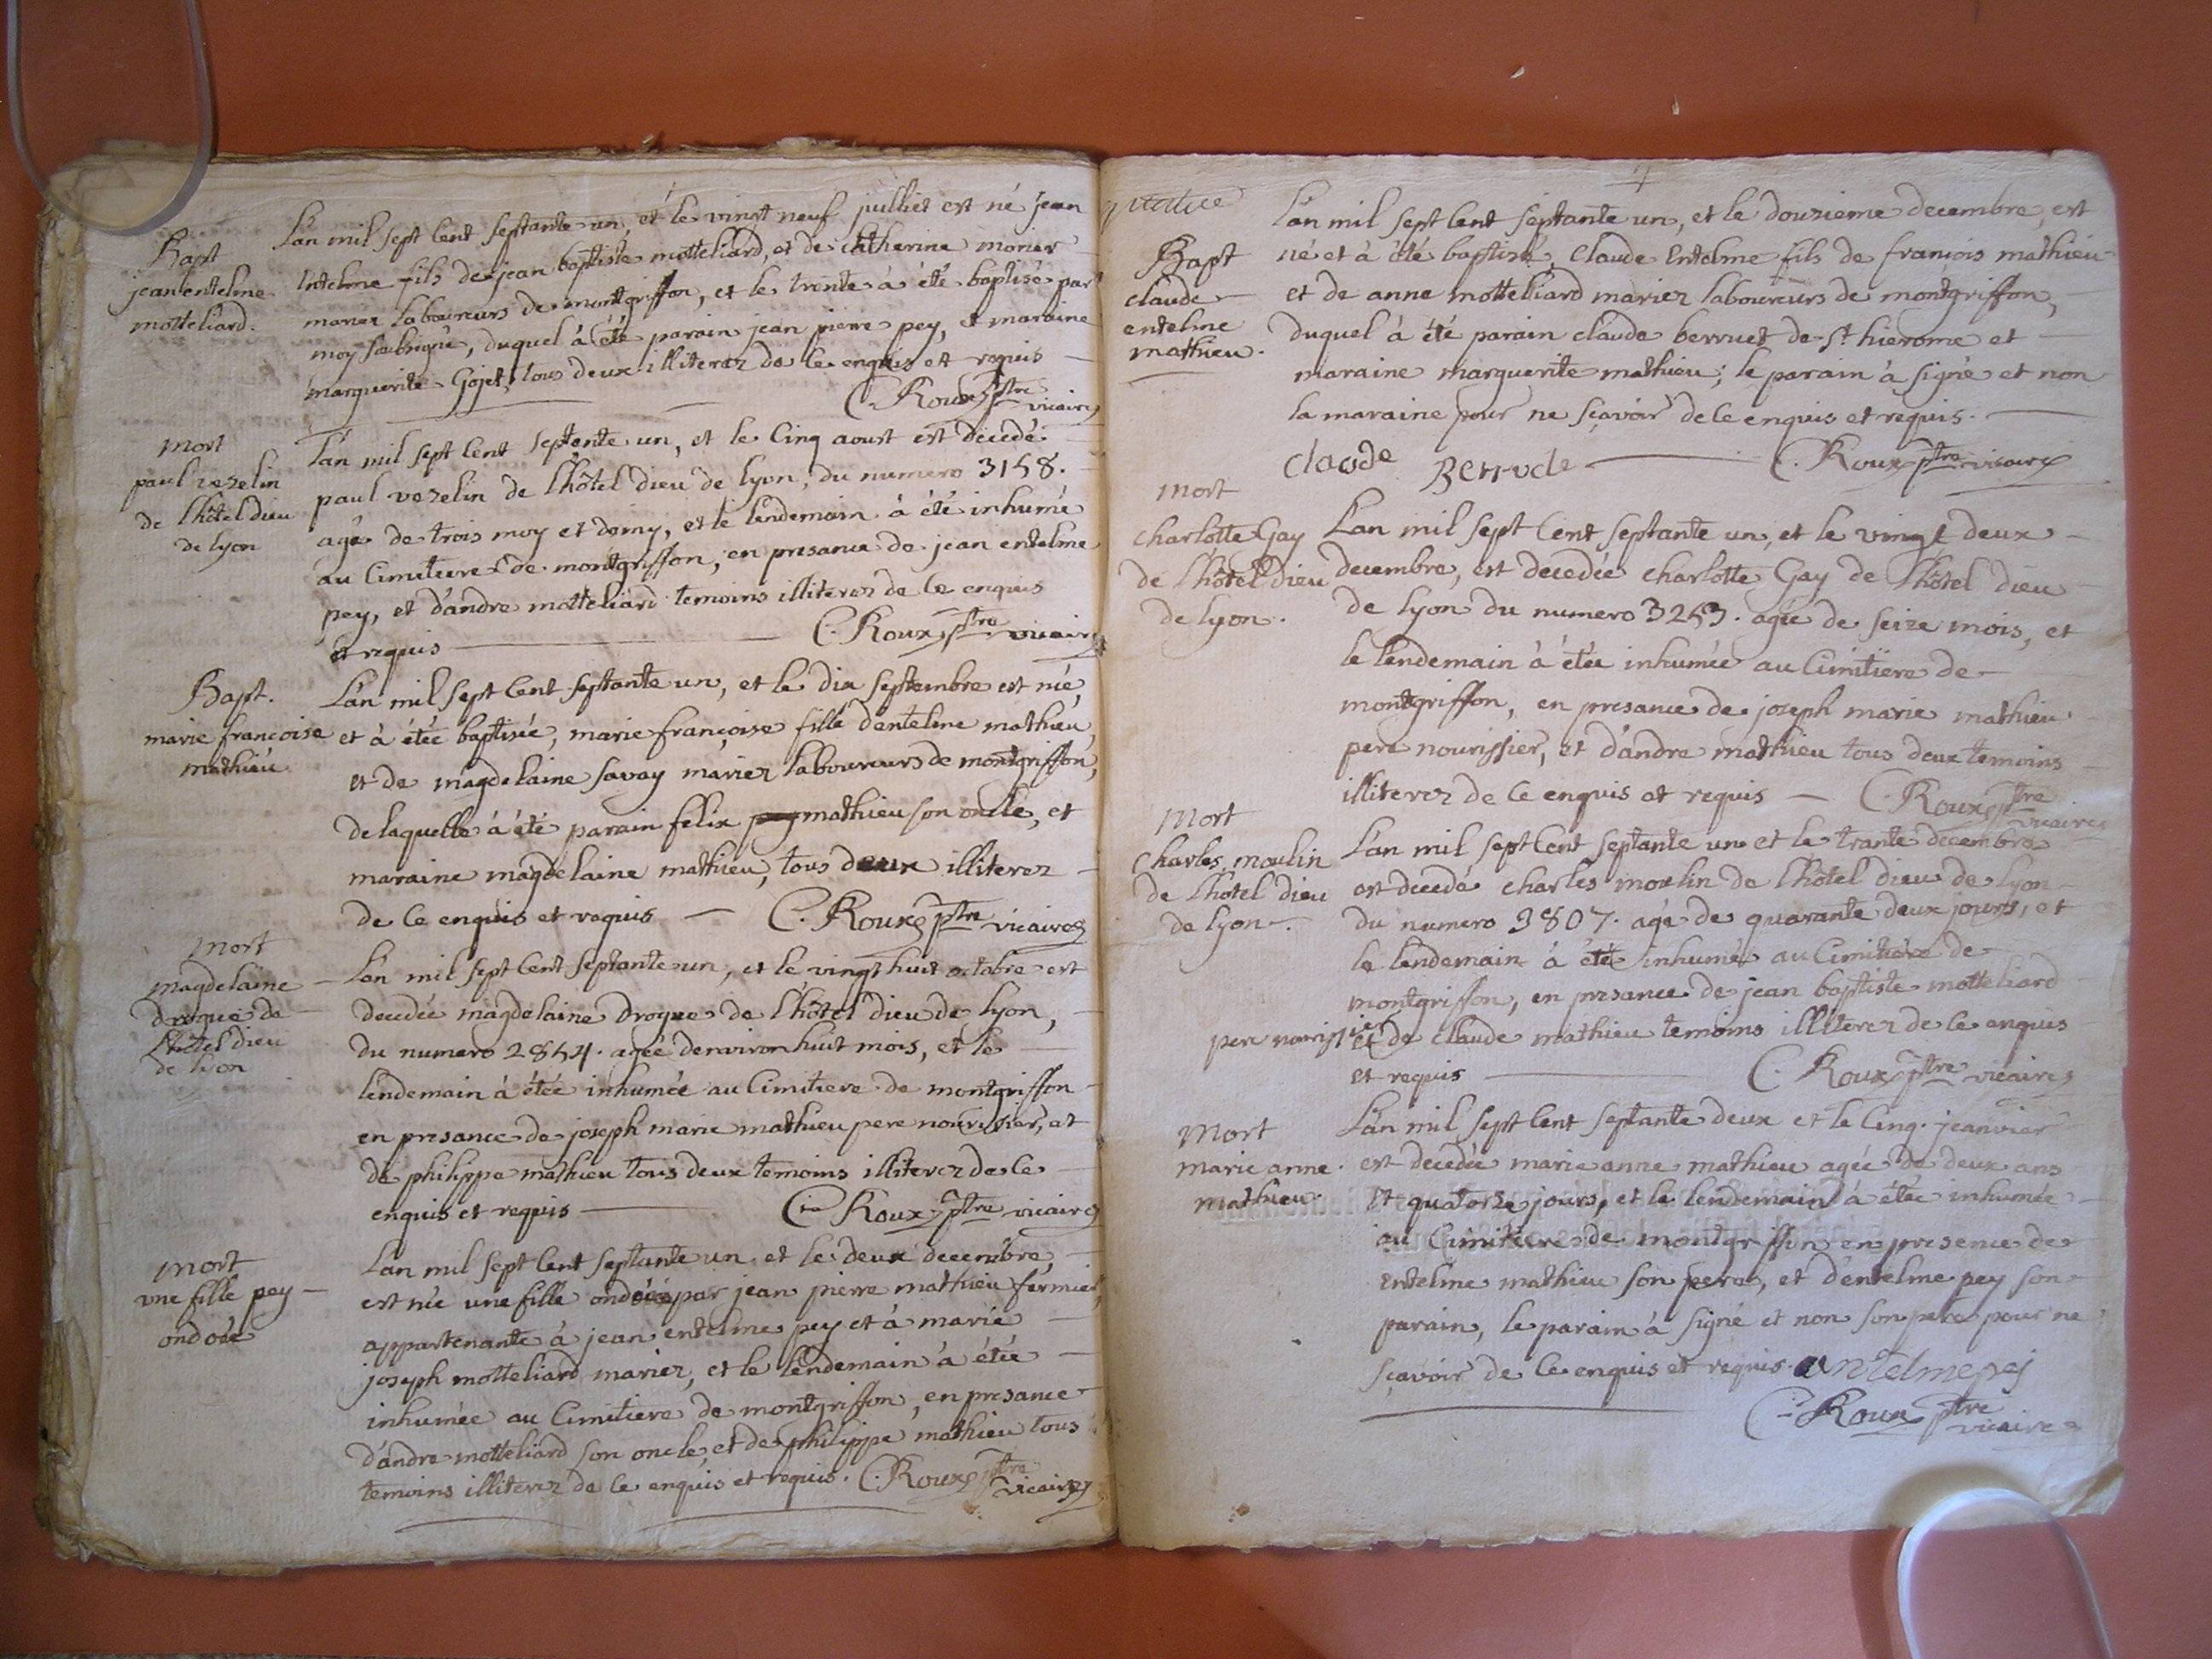 Bapt
jean entelme
motteliard.
L'an mil sept cent septante un, et le vingt neuf julliet est né jean
entelme fils de jean baptiste motteliard, et de catherine monier
mariez laboureurs de montgriffon, et le trente à été baptisé par
moy soubsigné, duquel à été parain jean pierre pey, et maraine
marguerite Gojet, tous deux illiterez de ce enquis et requis
C. Roux ptre
vicaire
mort
paul vezelin
de lhôtel dieu
de lyon
L'an mil sept cent septente un, et le cinq aoust est décédé
paul vezelin de lhôtel dieu de lyon, du numero 3158.
agé de trois moy et demy, et le lendemain à été inhumé
au cimitiere de montgriffon, en presance de jean entelme
pey, et d'andre motteliard temoins illiterez de ce enquis
et requis C. Roux ptre vicaire
Bapt.
marie françoise
mathieu
L'an mil sept cent septante un, et le dix septembre est née,
et à étée baptisée, marie françoise fille dentelme mathieu,
et de magdelaine savay mariez laboureurs de montgriffon,
de laquelle à été parain felix mathieu son oncle, et
maraine magdelaine mathieu, tous deux illiterez
de ce enquis et requis — C. Roux ptre vicaire
mort
magdelaine
droque de
lhôtel dieu
de lion
L'an mil sept cent septante un, et le vingt huit octobre est
decedée magdelaine Droque de lhôtel dieu de lyon,
du numero 2854. agée denviron huit mois, et le
lendemain à étée inhumée au cimitiere de montgriffon
en presance de joseph marie mathieu pere nourissier, et
de philippe mathieu tous deux temoins illiterez de ce
enquis et requis C. Roux ptre vicaire
mort
une fille pey
ondoée
Lan mil sept cent septante un et le deux decembre,
est née une fille ondoée par jean pierre mathieu fermier,
appartenante à jean entelme pey et à marie
joseph motteliard mariez, et le lendemain à étée
inhumée au cimitiere de montgriffon, en presance
d'andre motteliard son oncle, et de philippe mathieu tous
temoins illiterez de ce enquis et requis. C. Roux ptre
vicaire
Bapt
claude
entelme
mathieu.
L'an mil sept cent septante un, et le douzieme decembre, est
né et à été baptisé, Claude Entelme fils de françois mathieu
et de anne motteliard mariez laboureurs de montgriffon,
duquel à été parain claude berruet de St hierome et
maraine marguerite mathieu; le parain à signé et non
la maraine pour ne sçavoir de ce enquis et requis.
claude C. Roux ptre vicaire
mort
charlotte Gay
de lhôtel dieu
de lyon.
Lan mil sept cent septante un, et le vingt deux
decembre, est decedée charlotte Gay de lhôtel dieu
de lyon du numero 3253. agée de seize mois, et
le lendemain à étée inhumée au cimitiere de
montgriffon, en presance de joseph marie mathieu
pere nourissier, et d'andre mathieu tous deux temoins
illiterez de ce enquis et requis — C. Roux ptre
vicaire
mort
charles moulin
de lhôtel dieu
de lyon.
L'an mil sept cent septante un et le trante decembre
est decedé charles moulin de lhôtel dieu de lyon
du numero 3807. agé de quarante deux jours, et
le lendemain à été inhumé au cimitiere de
montgriffon, en presance de jean baptiste motteliard
pere nourissier
et de claude mathieu temoins illiterez de ce enquis
et requis C. Roux ptre vicaire
mort
marie anne
mathieu.
L'an mil sept cent septante deux et le cinq jeanvier
est decedée marie anne mathieu agée de deux ans
et quatorze jours, et le lendemain à étée inhumée
au cimitiere de montgriffon en presence de
entelme mathieu son pere, et d'entelme pey son
parain, le parain à signé et non son pere pour ne
sçavoir de ce enquis et requis. antelme pej
C. Roux ptre
vicaire